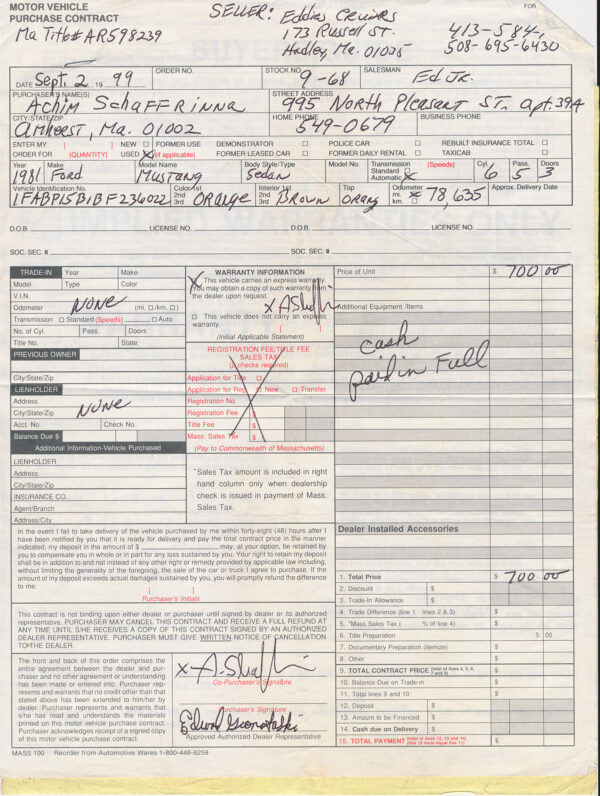 MOTOR VEHICLE
PURCHASE CONTRACT
Ma Title# AR598239
SELLER: Eddies Cruisers
173 Russell ST.
Hadley, Ma. 01035
FOR
413-584-
508-695-6430
DATE Sept. 2, 19 99
ORDER NO.
STOCK NO. 9-68
SALESMAN Ed Jr.
PURCHASER'S NAME(S) Achim Schaffrinna
STREET ADDRESS 995 North Pleasant ST. apt. 39A
CITY/STATE/ZIP Amherst, Ma. 01002
HOME PHONE 549-0679
BUSINESS PHONE
ENTER MY [ ] NEW □ FORMER USE DEMONSTRATOR □ POLICE CAR □ REBUILT INSURANCE TOTAL □
ORDER FOR (QUANTITY) USED X (if applicable) FORMER LEASED CAR □ FORMER DAILY RENTAL □ TAXICAB □
Year Make Model Name Body Style/Type Model No. Transmission (Speeds) Cyl. Pass. Doors
Standard □
1981 Ford Mustang Sedan Automatic X 6 5 3
Vehicle Identification No. Color/1st Interior 1st Top Odometer Approx. Delivery Date
1FABP15B1BF236022 2nd 3rd Orange 2nd 3rd Brown Orang mi. X km. □ 78,635
D.O.B. LICENSE NO. D.O.B. LICENSE NO.
SOC. SEC. # SOC. SEC. #
TRADE-IN Year Make
Model Type Color
V.I.N.
Odometer NONE (mi. □/km. □)
Transmission □ Standard (Speeds) □ Auto
No. of Cyl. Pass. Doors
Title No. State
PREVIOUS OWNER
City/State/Zip
LIENHOLDER
Address
City/State/Zip NONE
Acct. No. Check No.
Balance Due $
Additional Information-Vehicle Purchased
LIENHOLDER
Address
City/State/Zip
INSURANCE CO.
Agent/Branch
Address/City
WARRANTY INFORMATION
X This vehicle carries an express warranty.
You may obtain a copy of such warranty from
the dealer upon request.
X
□ This vehicle does not carry an express
warranty.
[ ]
(Initial Applicable Statement)
REGISTRATION FEE/TITLE FEE
SALES TAX
(2 checks required)
Application for Title □
Application for Reg. □ New □ Transfer
Registration No.
Registration Fee $
Title Fee $
Mass. Sales Tax $
(Pay to Commonwealth of Massachusetts)
*Sales Tax amount is included in right
hand column only when dealership
check is issued in payment of Mass.
Sales Tax.
Price of Unit $ 700 00
Additional Equipment /Items
cash
paid in Full
Dealer Installed Accessories
1. Total Price $ 700 00
2. Discount $
3. Trade-In Allowance $
4. Trade Difference (line 1 - lines 2 & 3) $
5. *Mass Sales Tax ( % of line 4) $
6. Title Preparation 5 00
7. Documentary Preparation (itemize) $
8. Other $
9. TOTAL CONTRACT PRICE (total of lines 4, 5, 6, 7 and 8) $
10. Balance Due on Trade-in $
11. Total lines 9 and 10 $
12. Deposit $
13. Amount to be Financed $
14. Cash due on Delivery $
15. TOTAL PAYMENT (total of lines 12, 13 and 14) (line 15 must equal line 11) $
In the event I fail to take delivery of the vehicle purchased by me within forty-eight (48) hours after I
have been notified by you that it is ready for delivery and pay the total contract price in the manner
indicated, my deposit in the amount of $ may, at your option, be retained by
you to compensate you in whole or in part for any loss sustained by you. Your right to retain my deposit
shall be in addition to and not instead of any other right or remedy provided by applicable law including,
without limiting the generality of the foregoing, the sale of the car or truck I agree to purchase. If the
amount of my deposit exceeds actual damages sustained by you, you will promptly refund the difference
to me.
[ ]
Purchaser's Initials
This contract is not binding upon either dealer or purchaser until signed by dealer or its authorized
representative. PURCHASER MAY CANCEL THIS CONTRACT AND RECEIVE A FULL REFUND AT
ANY TIME UNTIL S/HE RECEIVES A COPY OF THIS CONTRACT SIGNED BY AN AUTHORIZED
DEALER REPRESENTATIVE. PURCHASER MUST GIVE WRITTEN NOTICE OF CANCELLATION
TO THE DEALER.
The front and back of this order comprises the
entire agreement between the dealer and pur-
chaser and no other agreement or understanding
has been made or entered into. Purchaser rep-
resents and warrants that no credit other than that
stated above has been extended to him/her by
dealer. Purchaser represents and warrants that
s/he has read and understands the materials
printed on this motor vehicle purchase contract.
Purchaser acknowledges receipt of a signed copy
of this motor vehicle purchase contract.
X
Purchaser's Signature
Co-Purchaser's Signature
Approved Authorized Dealer Representative
MASS 100 Reorder from Automotive Wares 1-800-448-8259